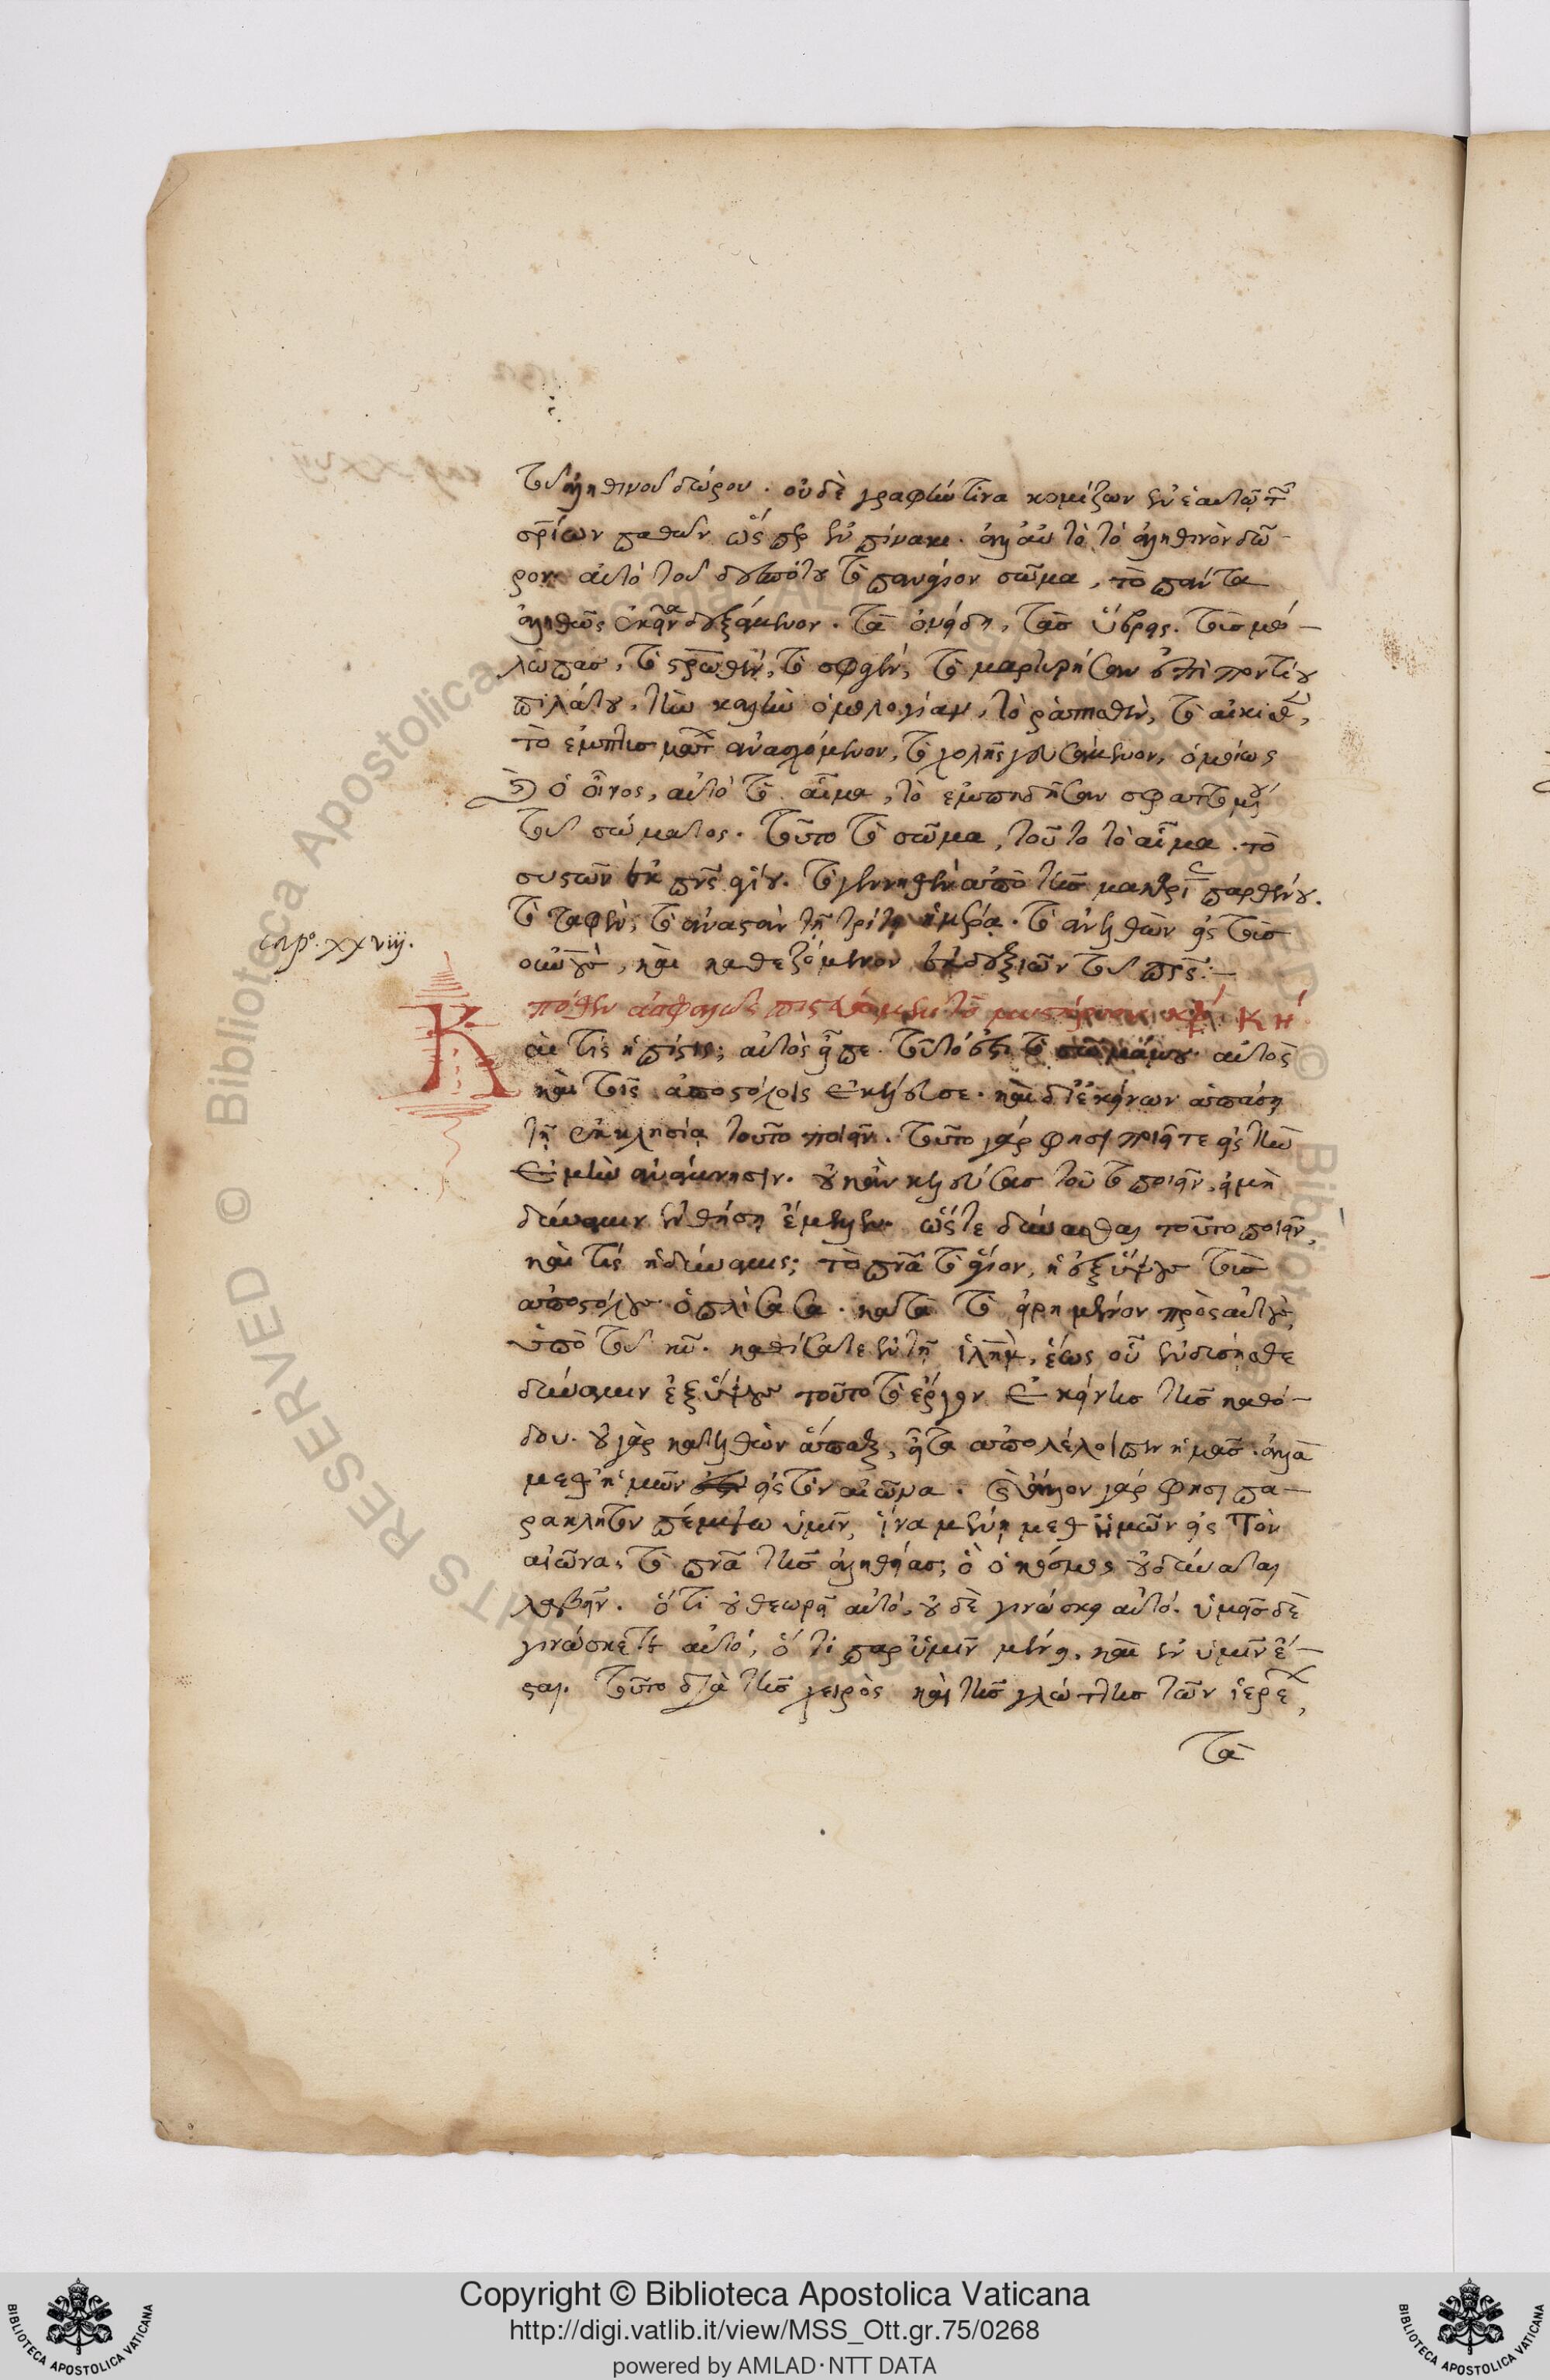 τοῦ ἀληθινοῦ δώρου. οὐδὲ γραφήν τινα κομίζων ἐν ἑαυτῶ τῶν
σρίων παθῶν ὥσπερ ἐν πίνακι. ἀλλ' αὐτὸ τὸ ἀληθινὸν δῶ-
ρον. αὐτὸ τοῦ δεσπότου τὸ πανάγιον σῶμα, τὸ πάντα
ἀληθῶς ἐκεῖνα δεξάμενον. τὰ ὀνείδη, τὰς ὕβρεις. τοὺς μώ-
λωπας, τὸ σρωθέν, τὸ σφαγέν, τὸ μαρτυρῆσαν ἐπὶ ποντίου
πιλάτου, τὴν καλὴν ὁμολογίαν, τὸ ῥαπισθέν, τὸ αἰκισθέν,
τὸ ἐμπτυσμάτων ἀνασχόμενον, τὸ χολῆς γευσάμενον, ὁμοίως
καὶ ὁ οἶνος, αὐτὸ τὸ αἷμα, τὸ ἐκπηδῆσαν σφαττομένου
τοῦ σώματος. τοῦτο τὸ σῶμα, τοῦτο τὸ αἷμα. τὸ
συστὰν ἐκ πνς ἁγίου. τὸ γεννηθὲν ἀπὸ τῆς μακαρίας παρθένου.
τὸ ταφέν, τὸ ἀναστὰν τῇ τρίτῃ ἡμέρᾳ. τὸ ἀνελθὸν εἰς τοὺς
οὐνούς, καὶ καθεζόμενον ἐκ δεξιῶν τοῦ πρς:-
cap°. xxviij.
πόθεν ἀσφαλῶς πιστεύομεν τὸ μυστήριον κεφ. κη΄
Καὶ τίς ἡ πίστις; αὐτὸς εἶπε. τοῦτό ἐστι τὸ σῶμά μου. αὐτὸς
καὶ τοῖς ἀποστόλοις ἐκέλευσε. καὶ δι' ἐκείνων ἁπάσῃ
τῇ ἐκκλησίᾳ τοῦτο ποιεῖν. τοῦτο γάρ φησι ποιεῖτε εἰς τὴν
ἐμὴν ἀνάμνησιν. οὐκ ἂν κελεύσας τοῦτο ποιεῖν, εἰ μὴ
δύναμιν ἐνθήσειν ἔμελλεν. ὥστε δύνασθαι τοῦτο ποιεῖν,
καὶ τίς ἡ δύναμις; τὸ πνᾶ τὸ ἅγιον, ἡ ἐξ ὕψους τοὺς
ἀποστόλους ὁπλίσασα. κατὰ τὸ εἰρημένον πρὸς αὐτούς,
ὑπὸ τοῦ κυ. καθίσατε ἐν τῇ ἱλημ, ἕως οὗ ἐνδύσησθε
δύναμιν ἐξ ὕψους τοῦτο τὸ ἔργον ἐκείνης τῆς καθό-
δου. οὐ γὰρ κατελθὼν ἅπαξ, εἶτα ἀπολέλοιπεν ἡμᾶς. ἀλλὰ
μεθ' ἡμῶν εἰς τὸν αἰῶνα. ἄλλον γάρ φησι πα-
ράκλητον πέμψω ὑμῖν, ἵνα μένῃ μεθ' ὑμῶν εἰς τὸν
αἰῶνα, τὸ πνᾶ τῆς ἀληθείας, ὃ ὁ κόσμος οὐ δύναται
λαβεῖν. ὅτι οὐ θεωρεῖ αὐτό, οὐδὲ γινώσκει αὐτό. ὑμεῖς δὲ
γινώσκετε αὐτό, ὅτι παρ' ὑμῖν μένει, καὶ ἐν ὑμῖν ἔ-
σται. τοῦτο διὰ τῆς χειρὸς καὶ τῆς γλώττης τῶν ἱερέων,
τὰ
Copyright © Biblioteca Apostolica Vaticana
http://digi.vatlib.it/view/MSS_Ott.gr.75/0268
powered by AMLAD·NTT DATA